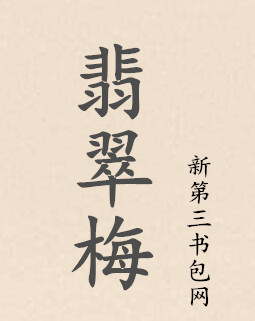 翡翠梅
新第三书包网